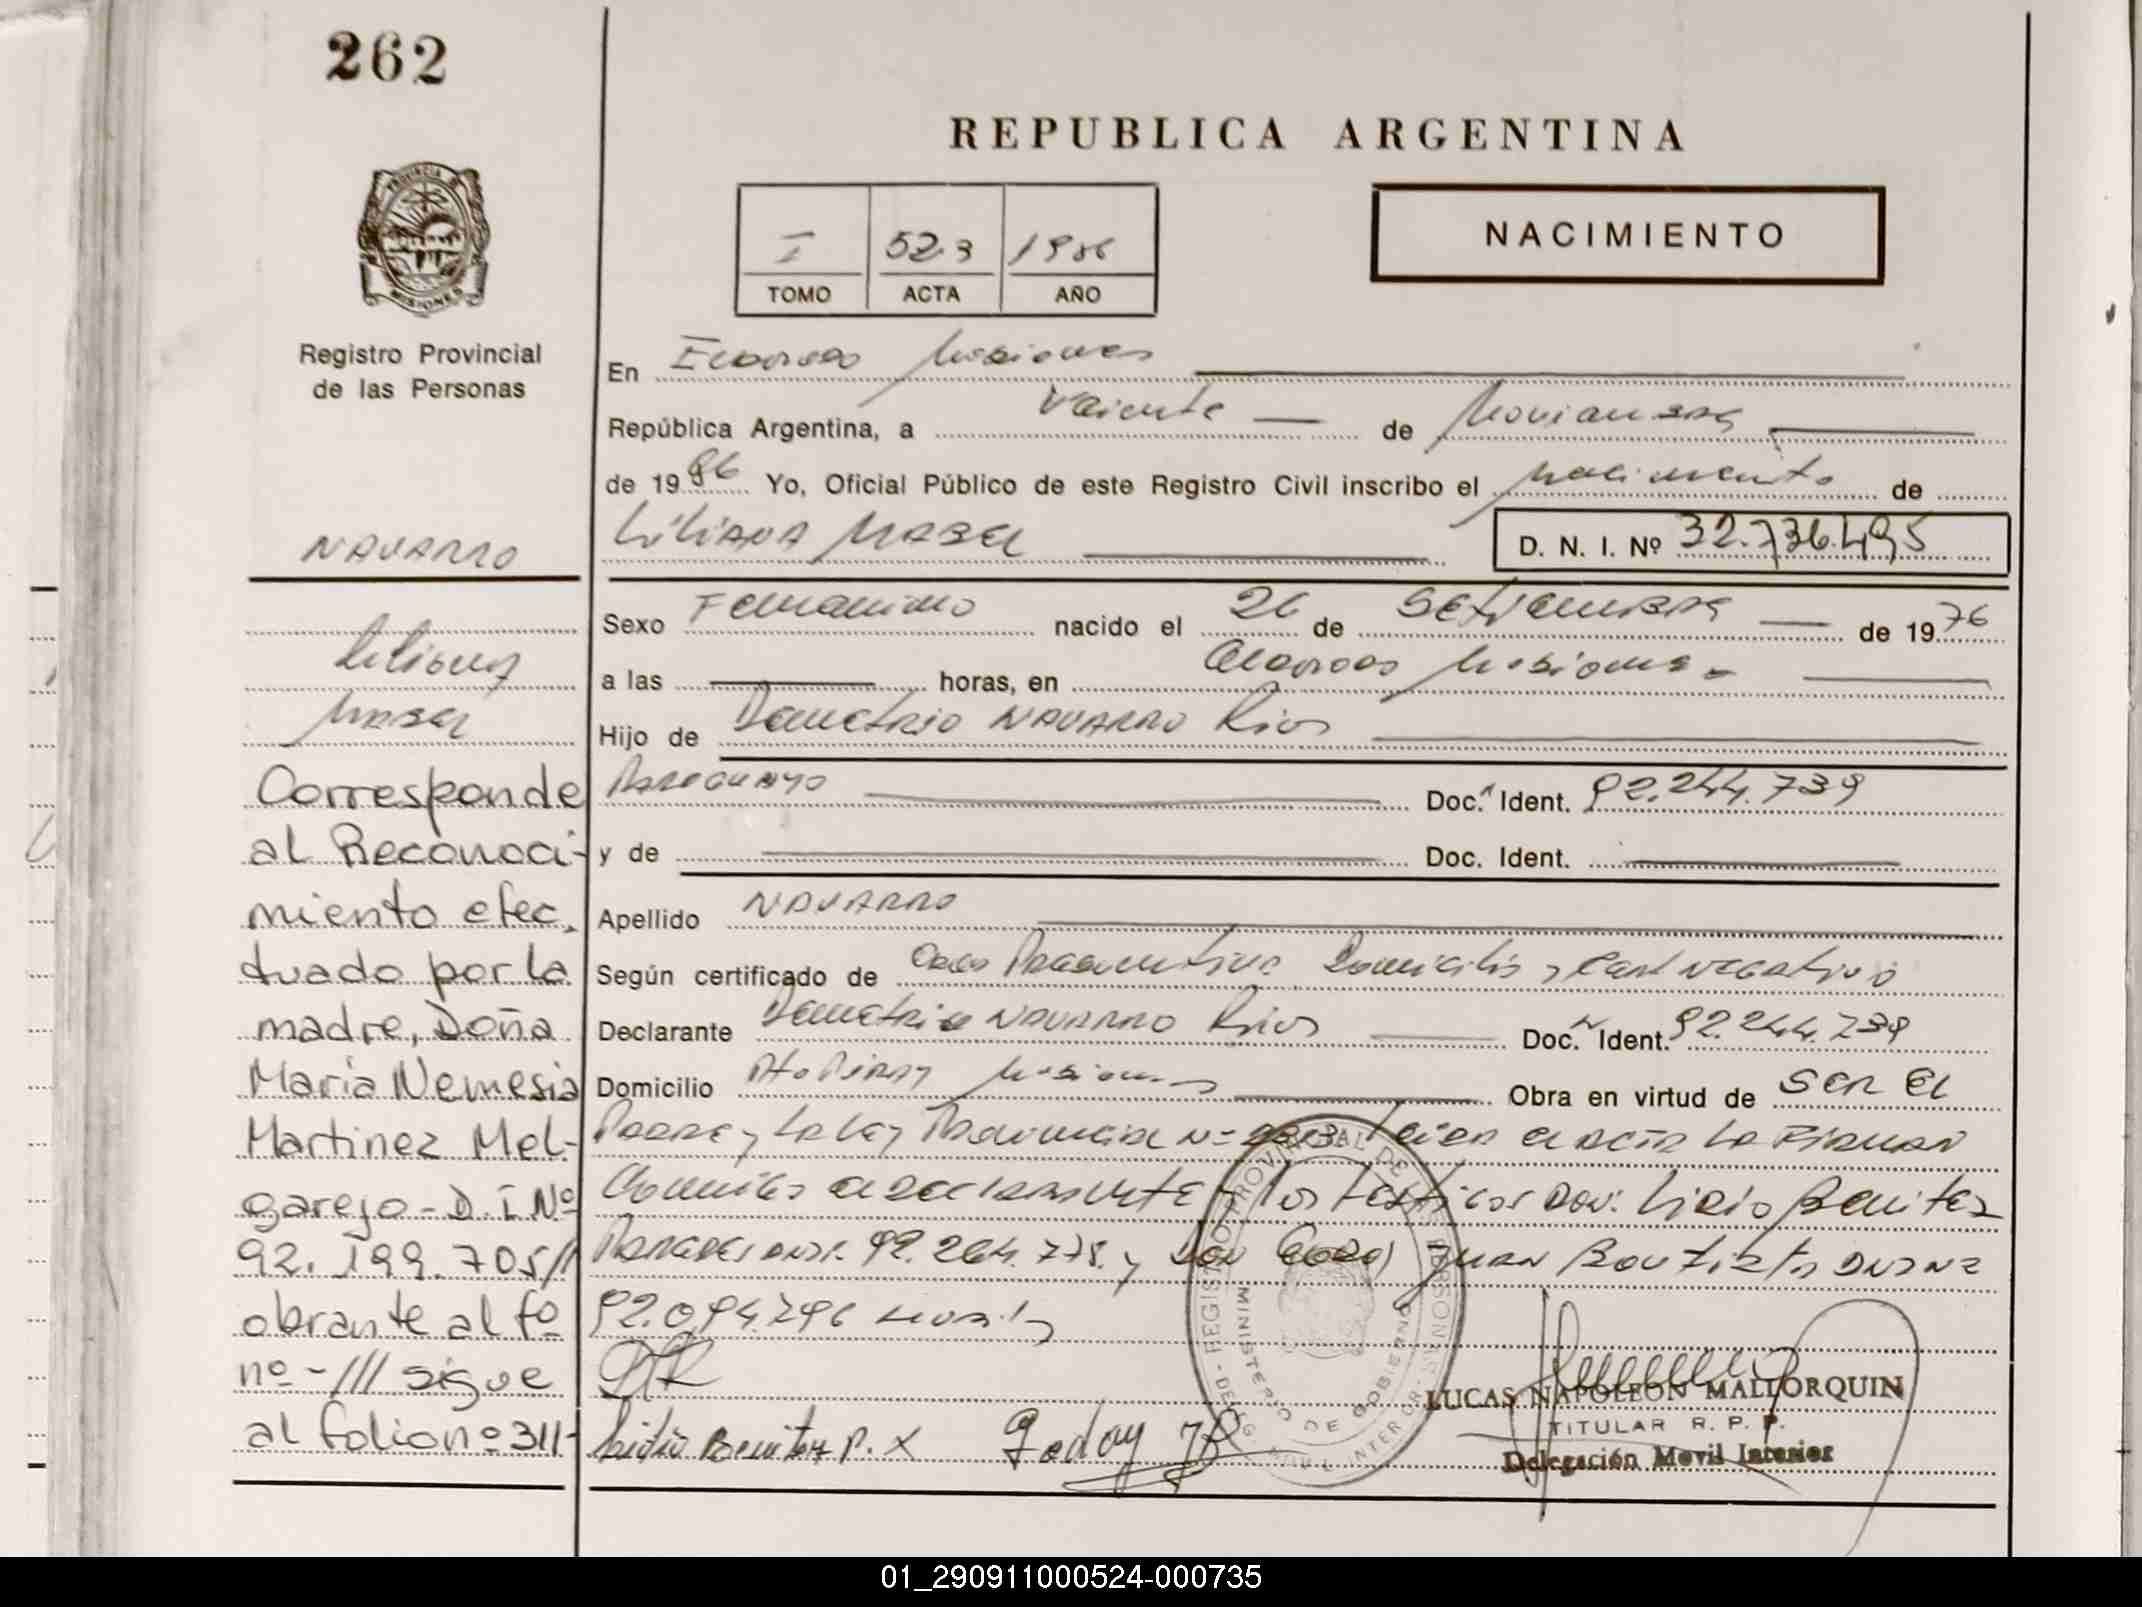 262
REPUBLICA ARGENTINA
PROVINCIA DE
MISIONES
Registro Provincial
de las Personas
I 523 1986
TOMO ACTA AÑO
NACIMIENTO
En Eldorado Misiones
República Argentina, a Veinte de Noviembre
de 1986 Yo, Oficial Público de este Registro Civil inscribo el nacimiento de
Liliana Mabel
D. N. I. Nº 32.736.495
NAVARRO
Liliana
Mabel
Corresponde
al Reconoci-
miento efec,
tuado por la
madre, Doña
María Nemesia
Martinez Mel-
garejo - D. I. Nº
92. 199. 705//
obrante al fº
nº - /// sigue
al folio nº 311-
Sexo Femenino nacido el 26 de Setiembre de 1976
a las horas, en Eldorado Misiones
Hijo de Demetrio NAVARRO Rios
Paraguayo Doc. Ident. 92.244.739
y de Doc. Ident.
Apellido NAVARRO
Según certificado de Domicilio y Cert negativo
Declarante Demetrio NAVARRO Rios Doc. Ident. 92.244.739
Domicilio Pto Piray Misiones Obra en virtud de SER EL
Padre y la ley Provincial Nº el acta la Firman
el declarante y los testigos Don: Lidio Benitez
92.264.778. y Don Juan Bautista
92.094.796
Lidio Benitez P. X Godoy JB
REGISTRO PROVINCIAL DE LAS PERSONAS
MINISTERIO DE GOBIERNO
LUCAS NAPOLEON MALLORQUIN
TITULAR R. P. P.
Delegación Movil Interior
01_290911000524-000735